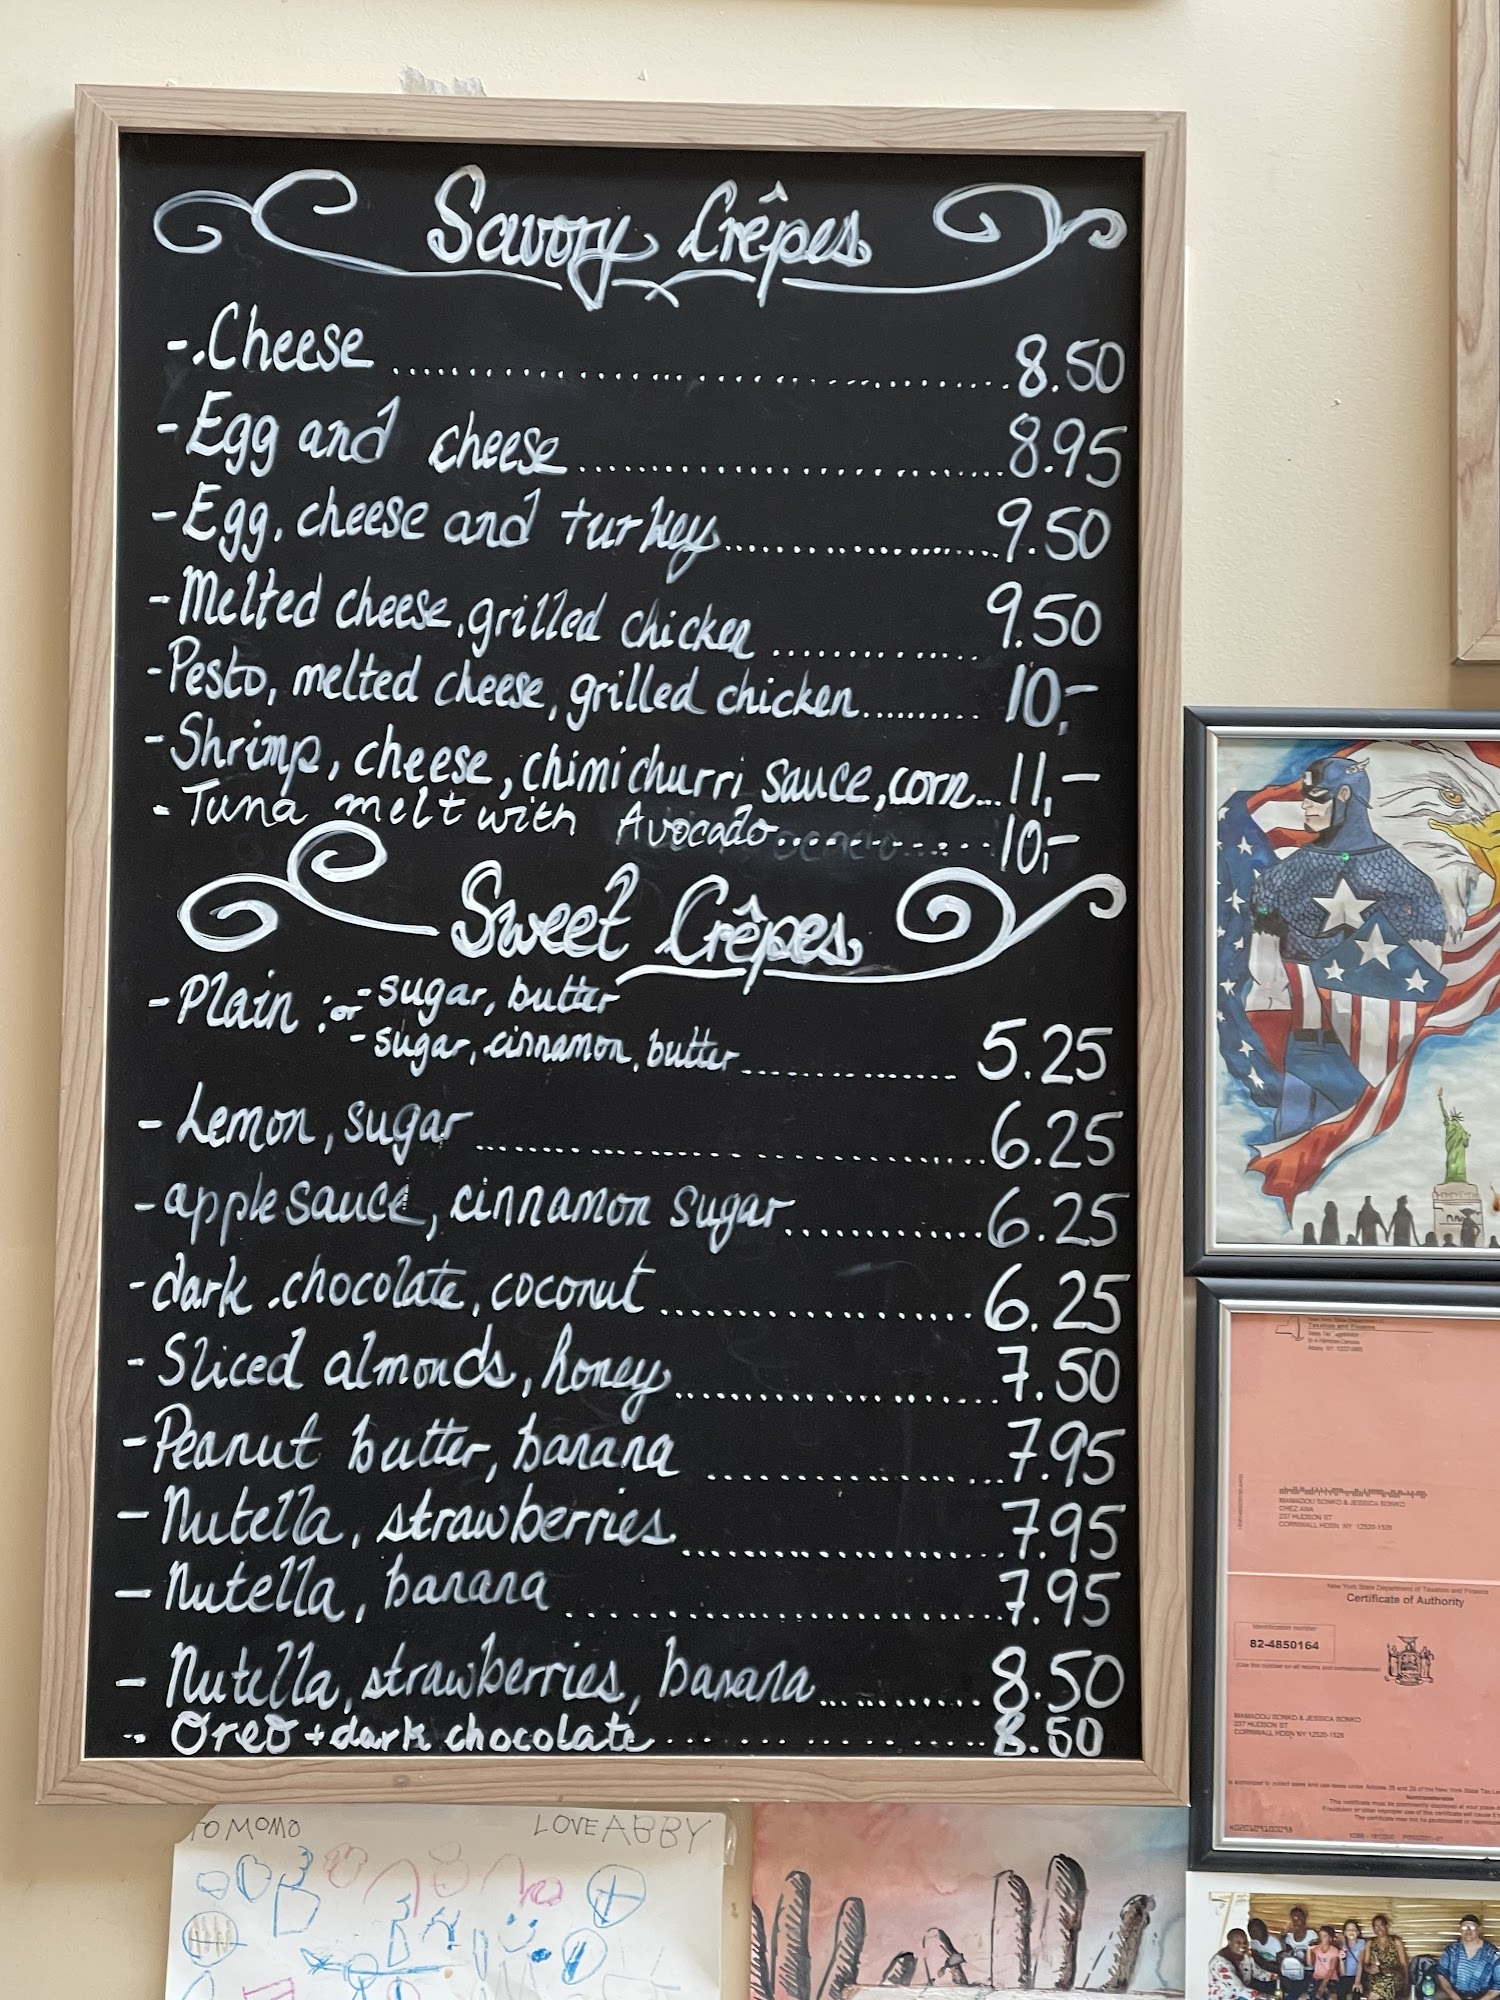 Savory Crêpes
- Cheese .......... 8.50
- Egg and cheese .......... 8.95
- Egg, cheese and turkey .......... 9.50
- Melted cheese, grilled chicken .......... 9.50
- Pesto, melted cheese, grilled chicken .......... 10,-
- Shrimp, cheese, chimichurri sauce, corn ... 11,-
- Tuna melt with Avocado .......... 10,-
Sweet Crêpes
- Plain : or - sugar, butter
- sugar, cinnamon, butter .......... 5.25
- Lemon, sugar .......... 6.25
- applesauce, cinnamon sugar .......... 6.25
- dark chocolate, coconut .......... 6.25
- Sliced almonds, honey .......... 7.50
- Peanut butter, banana .......... 7.95
- Nutella, strawberries .......... 7.95
- Nutella, banana .......... 7.95
- Nutella, strawberries, banana .......... 8.50
- Oreo + dark chocolate .......... 8.50
Taxation and Finance
MAMADOU SONKO & JESSICA SONKO
CHEZ ANA
237 HUDSON ST
CORNWALL HDSN NY 12520-1529
New York State Department of Taxation and Finance
Certificate of Authority
Identification number
82-4850164
MAMADOU SONKO & JESSICA SONKO
237 HUDSON ST
CORNWALL HDSN NY 12520-1529
TO MOMO
LOVE ABBY